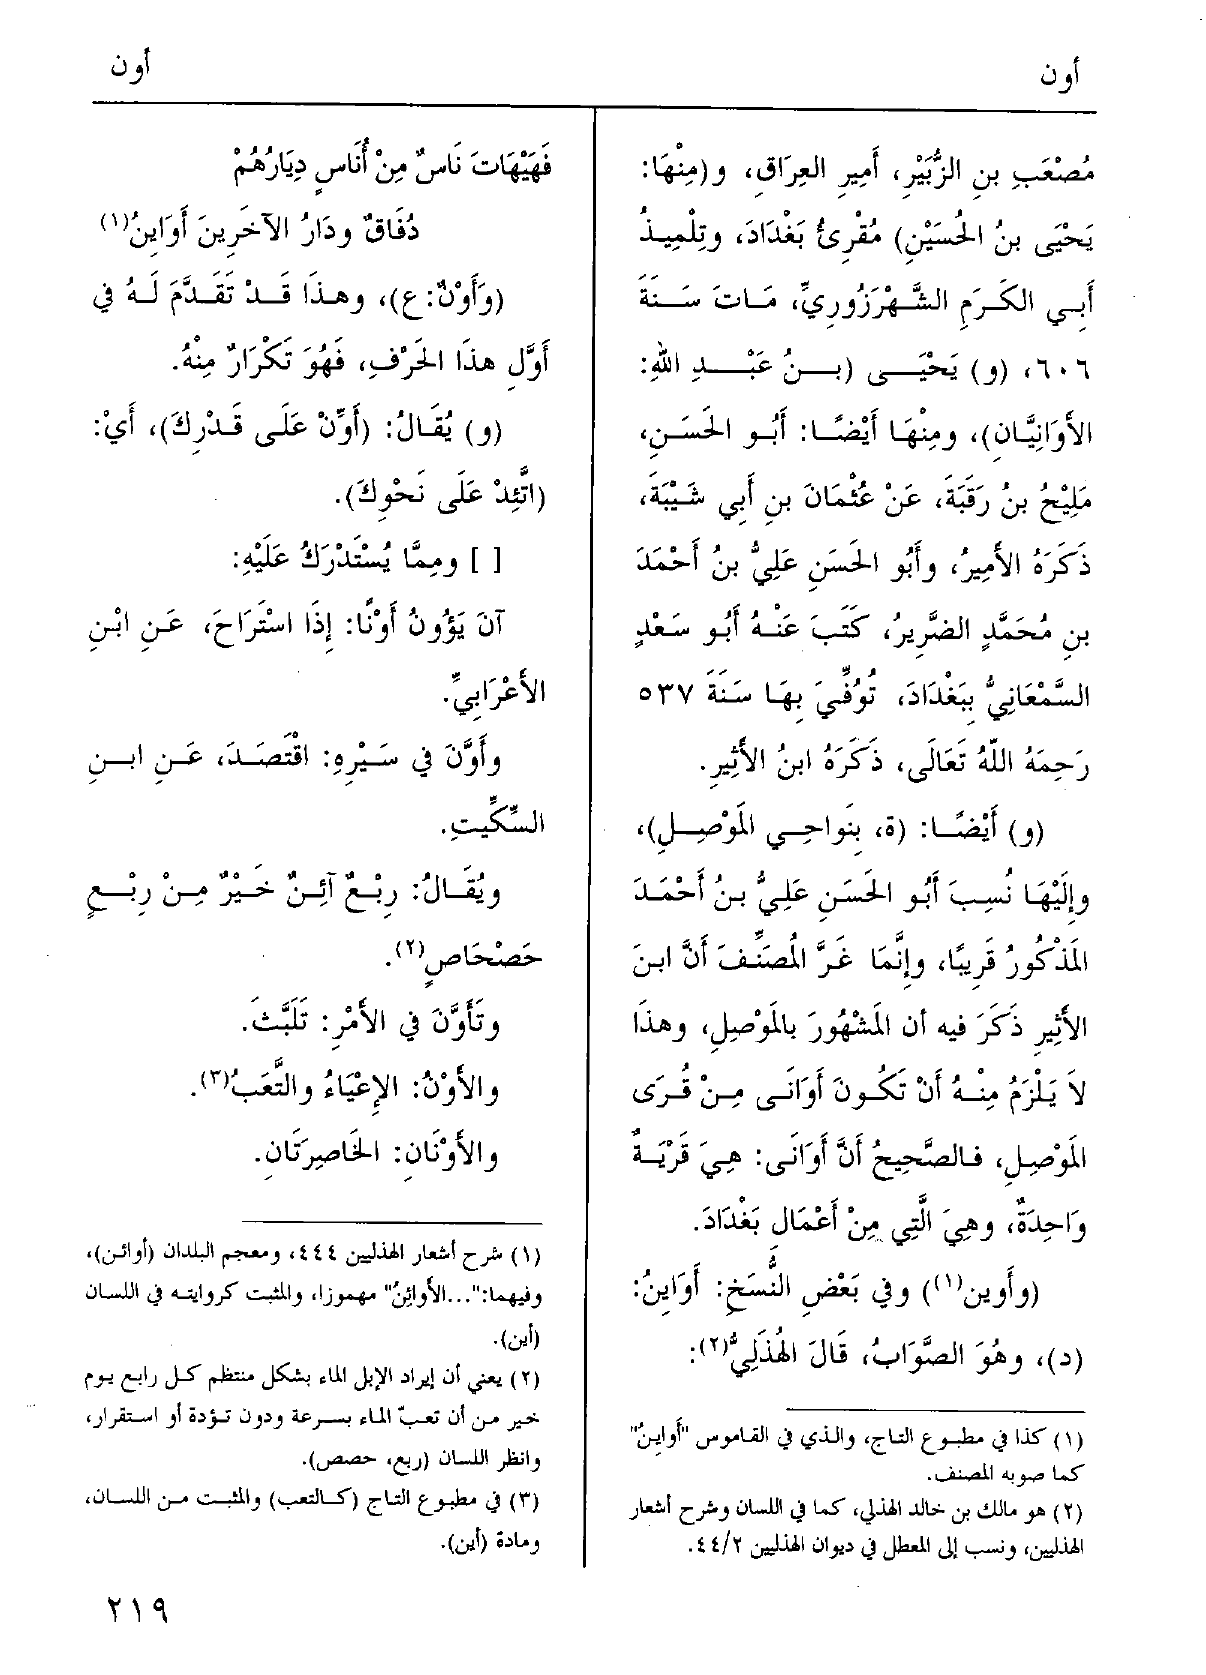 أون
أون
مُصْعَبِ بنِ الزُّبَيْرِ، أَمِيرِ العِرَاقِ، و(مِنْهَا:
يَحْيَى بنُ الحُسَيْنِ) مُقْرِئُ بَغْدَادَ، وتِلْمِيذُ
أَبِي الكَرَمِ الشَّهْرَزُورِيِّ، مَاتَ سَنَةَ
٦٠٦، (و) يَحْيَى (بنُ عَبْدِ اللهِ:
الأَوَانِيَّانِ)، ومِنْهَا أَيْضًا: أَبُو الحَسَنِ،
مَلِيْحُ بنُ رَقَبَةَ، عَنْ عُثْمَانَ بنِ أَبِي شَيْبَةَ،
ذَكَرَهُ الأَمِيرُ، وأَبُو الحَسَنِ عَلِيُّ بنُ أَحْمَدَ
بنِ مُحَمَّدٍ الضَّرِيرُ، كَتَبَ عَنْهُ أَبُو سَعْدٍ
السَّمْعَانِيُّ بِبَغْدَادَ، تُوُفِّيَ بِهَا سَنَةَ ٥٣٧
رَحِمَهُ اللَّهُ تَعَالَى، ذَكَرَهُ ابنُ الأَثِيرِ.
(و) أَيْضًا: (ة، بِنَواحِي المَوْصِلِ)،
وإِلَيْهَا نُسِبَ أَبُو الحَسَنِ عَلِيُّ بنُ أَحْمَدَ
المَذْكُورُ قَرِيبًا، وإِنَّمَا غَرَّ المُصَنِّفَ أَنَّ ابنَ
الأَثِيرِ ذَكَرَ فيه أن المَشْهُورَ بالمَوْصِلِ، وهذَا
لاَ يَلْزَمُ مِنْهُ أَنْ تَكُونَ أَوَانَى مِنْ قُرَى
المَوْصِلِ، فالصَّحِيحُ أَنَّ أَوَانَى: هِيَ قَرْيَةٌ
وَاحِدَةٌ، وهِيَ الَّتِي مِنْ أَعْمَالِ بَغْدَادَ.
(وأوين(١)) وفي بَعْضِ النُّسَخِ: أَوَاينُ:
(د)، وهُوَ الصَّوَابُ، قَالَ الهُذَلِيُّ(٢):
(١) كذا في مطبوع التاج، والذي في القاموس "أَواينُ"
كما صوبه المصنف.
(٢) هو مالك بن خالد الهذلي، كما في اللسان وشرح أشعار
الهذليين، ونسب إلى المعطل في ديوان الهذليين ٤٤/٢.
فَهَيْهَاتَ نَاسٌ مِنْ أُنَاسٍ دِيَارُهُمْ
دُفَاقٌ ودَارُ الآخَرِينَ أَوَاينُ(١)
(وَأَوْنٌ: ع)، وهذَا قَدْ تَقَدَّمَ لَهُ في
أَوَّلِ هذَا الحَرْفِ، فَهُوَ تَكْرَارٌ مِنْهُ.
(و) يُقَالُ: (أَوِّنْ عَلَى قَدْرِكَ)، أَيْ:
(اتَّئِدْ عَلَى نَحْوِكَ).
[ ] ومِمَّا يُسْتَدْرَكُ عَلَيْهِ:
آنَ يَؤُونُ أَوْنًا: إِذَا اسْتَرَاحَ، عَنِ ابْنِ
الأَعْرَابِيِّ.
وأَوَّنَ في سَيْرِهِ: اقْتَصَدَ، عَنِ ابنِ
السِّكِّيتِ.
ويُقَالُ: رِبْعٌ آئِنٌ خَيْرٌ مِنْ رِبْعٍ
حَصْحَاصٍ(٢).
وتَأَوَّنَ في الأَمْرِ: تَلَبَّثَ.
والأَوْنُ: الإِعْيَاءُ والتَّعَبُ(٣).
والأَوْنَانِ: الخَاصِرَتَانِ.
(١) شرح أشعار الهذليين ٤٤٤، ومعجم البلدان (أوائن)،
وفيهما:"...الأَوائِنُ" مهموزا، والمثبت كروايته في اللسان
(أين).
(٢) يعني أن إيراد الإبل الماء بشكل منتظم كل رابع يوم
خير من أن تعبّ الماء بسرعة ودون تؤدة أو استقرار،
وانظر اللسان (ربع، حصص).
(٣) في مطبوع التاج (كالتعب) والمثبت من اللسان،
ومادة (أين).
٢١٩